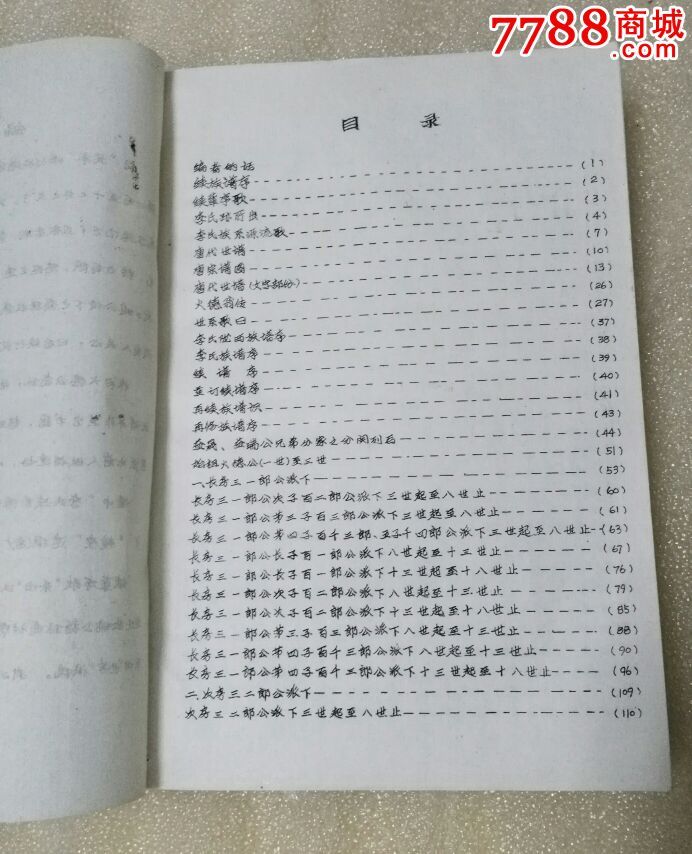 7788商城
目录
编者的话(1)
续族谱序(2)
续辈序歌(3)
李氏(4)
李氏族系源流歌(7)
唐代世谱(10)
唐宗谱图(13)
唐代世谱(文字部份)(26)
火德翁传(27)
世系歌曰(37)
李氏陇西族谱序(38)
李氏族谱序(39)
续谱序(40)
重订续谱序(41)
再续族谱识(43)
再修族谱序(44)
公兄弟分家之分阄列后(51)
始祖火德公(一世)至三世(53)
一、长房三一郎公派下
长房三一郎公次子百二郎公派下三世起至八世止(60)
长房三一郎公第三子百三郎公派下三世起至八世止(61)
长房三一郎公第四子百千三郎、五子千四郎公派下三世起至八世止(63)
长房三一郎公长子百一郎公派下八世起至十三世止(67)
长房三一郎公长子百一郎公派下十三世起至十八世止(76)
长房三一郎公次子百二郎公派下八世起至十三世止(79)
长房三一郎公次子百二郎公派下十三世起至十八世止(85)
长房三一郎公第三子百三郎公派下八世起至十三世止(88)
长房三一郎公第四子百千三郎公派下八世起至十三世止(90)
长房三一郎公第四子百千三郎公派下十三世起至十八世止(96)
二、次房三二郎公派下(109)
次房三二郎公派下三世起至八世止(110)